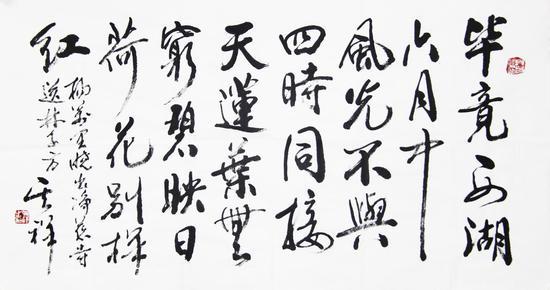 毕竟西湖
六月中
風光不與
四時同接
天蓮葉無
窮碧映日
荷花別樣
紅
楊萬里曉出淨慈寺
送林子方
祥